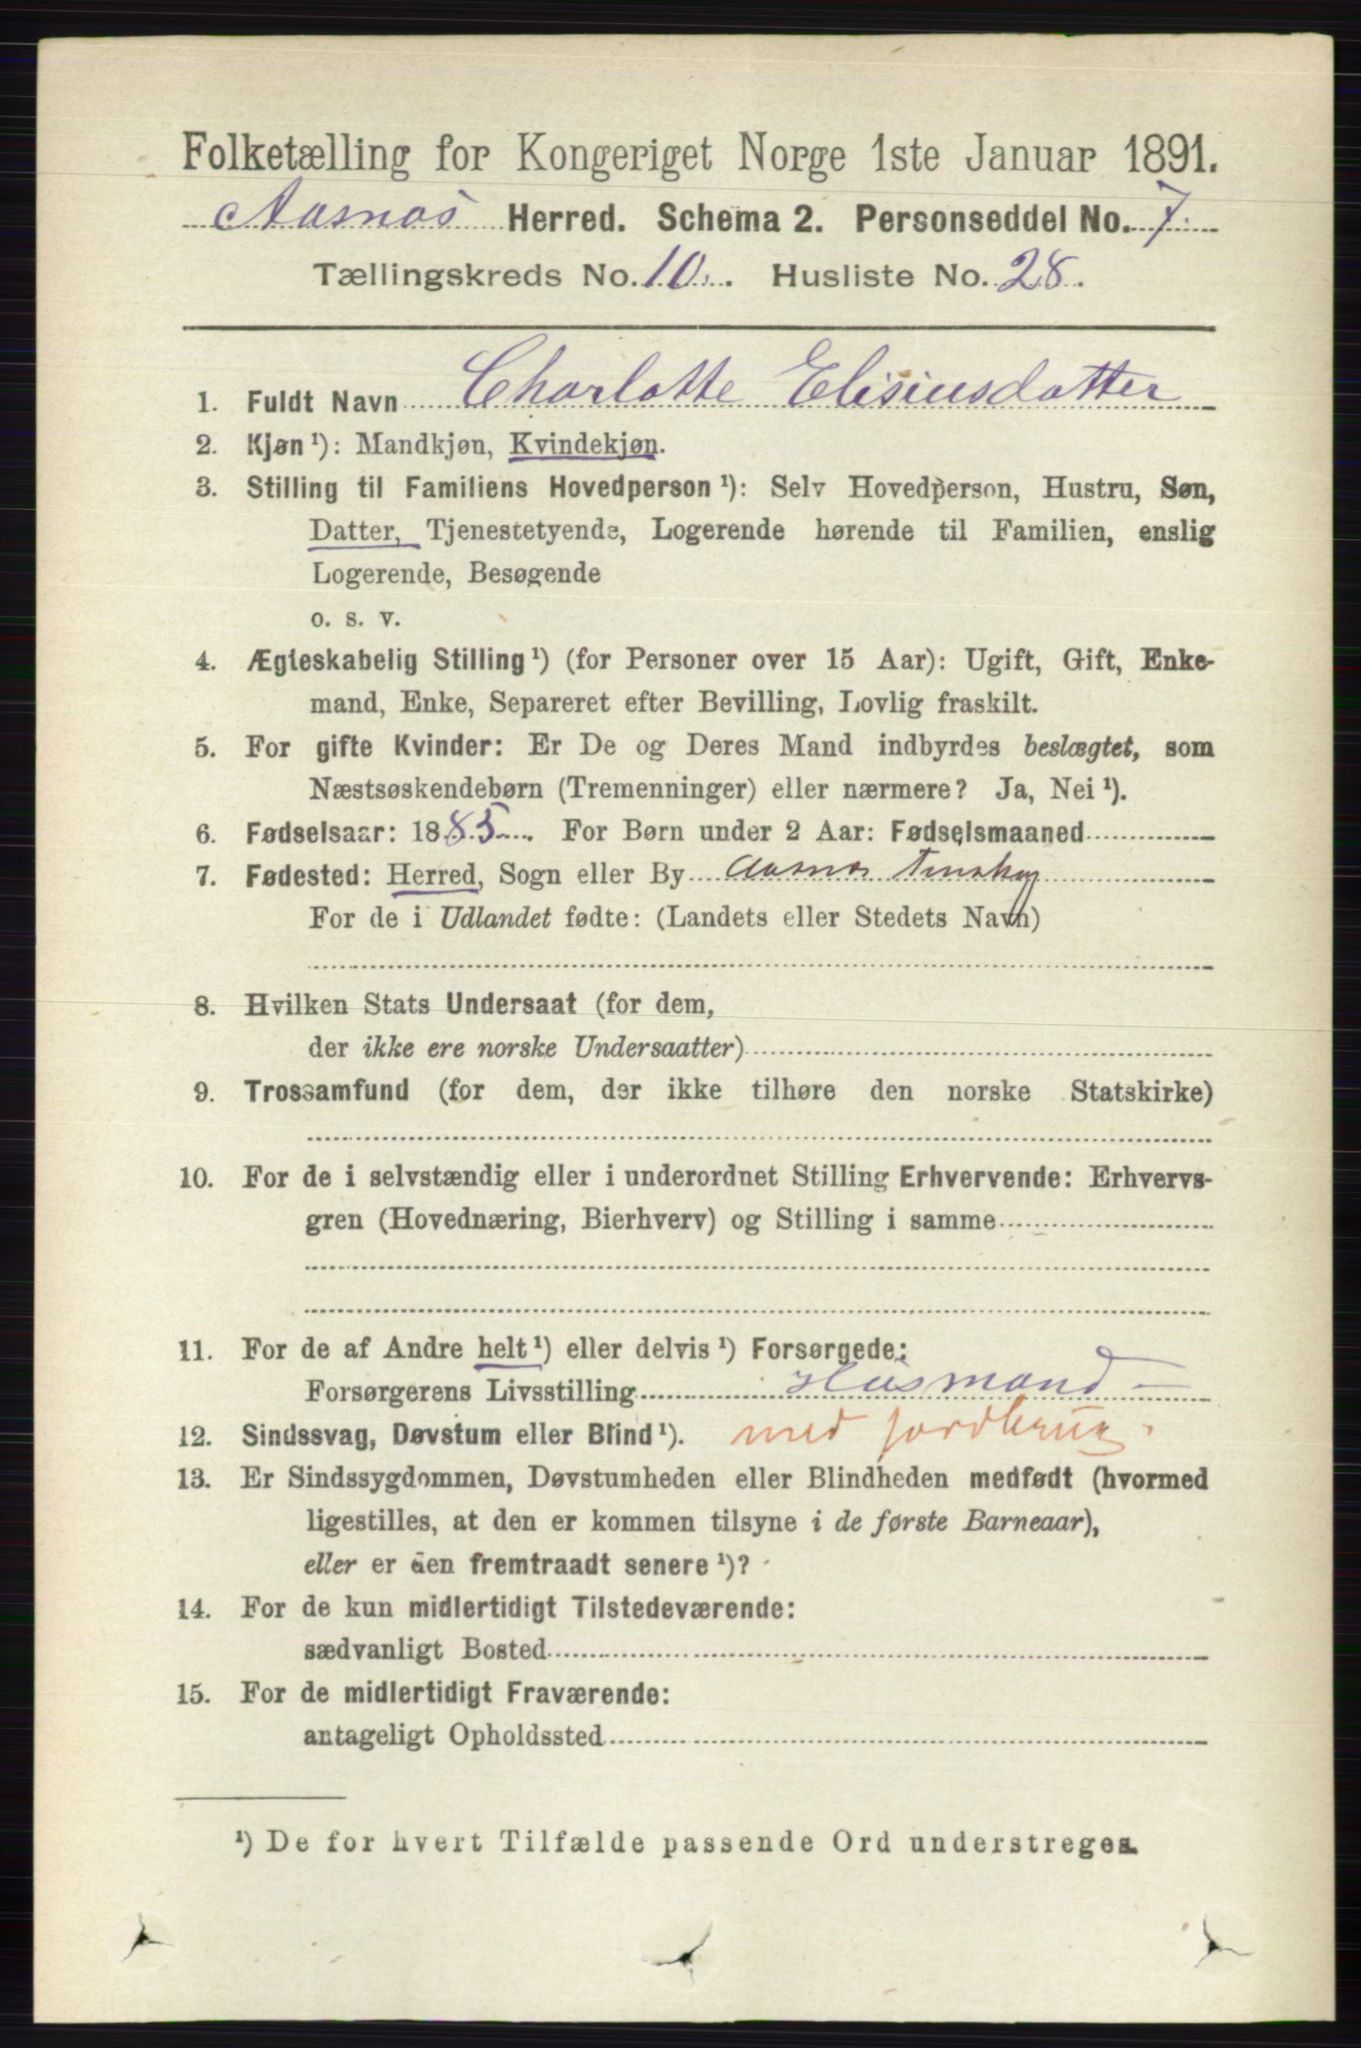 Folketælling for Kongeriget Norge 1ste Januar 1891.
Aasnæs Herred. Schema 2. Personseddel No. 7.
Tællingskreds No. 10. Husliste No. 28.
1. Fuldt Navn Charlotte Elisiusdatter
2. Kjøn¹): Mandkjøn, Kvindekjøn.
3. Stilling til Familiens Hovedperson¹): Selv Hovedperson, Hustru, Søn,
Datter, Tjenestetyende, Logerende hørende til Familien, enslig
Logerende, Besøgende
o. s. v.
4. Ægteskabelig Stilling¹) (for Personer over 15 Aar): Ugift, Gift, Enke-
mand, Enke, Separeret efter Bevilling, Lovlig fraskilt.
5. For gifte Kvinder: Er De og Deres Mand indbyrdes beslægtet, som
Næstsøskendebørn (Tremenninger) eller nærmere? Ja, Nei¹).
6. Fødselsaar: 1885. For Børn under 2 Aar: Fødselsmaaned
7. Fødested: Herred, Sogn eller By Aasnæs
For de i Udlandet fødte: (Landets eller Stedets Navn)
8. Hvilken Stats Undersaat (for dem,
der ikke ere norske Undersaatter)
9. Trossamfund (for dem, der ikke tilhøre den norske Statskirke)
10. For de i selvstændig eller i underordnet Stilling Erhvervende: Erhvervs-
gren (Hovednæring, Bierhverv) og Stilling i samme
11. For de af Andre helt¹) eller delvis¹) Forsørgede:
Forsørgerens Livsstilling Husmand —
12. Sindssvag, Døvstum eller Blind¹). med jordbrug.
13. Er Sindssygdommen, Døvstumheden eller Blindheden medfødt (hvormed
ligestilles, at den er kommen tilsyne i de første Barneaar),
eller er den fremtraadt senere¹)?
14. For de kun midlertidigt Tilstedeværende:
sædvanligt Bosted
15. For de midlertidigt Fraværende:
antageligt Opholdssted
¹) De for hvert Tilfælde passende Ord understreges.